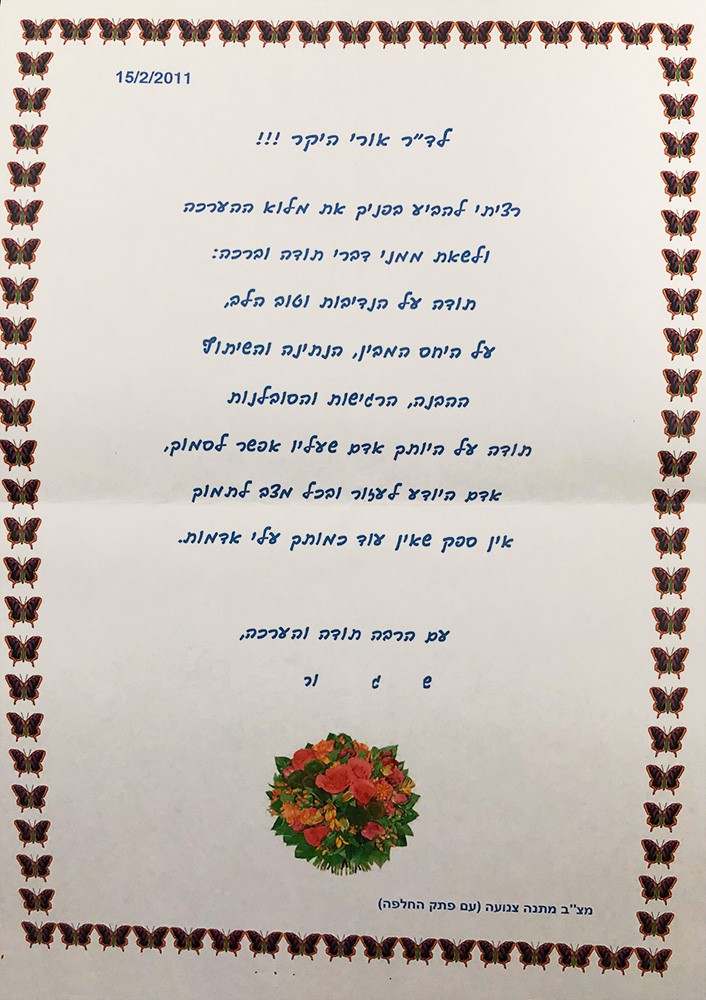 15/2/2011
לד"ר אורי היקר !!!
רציתי להביע בפניך את מלוא ההערכה
ולשאת ממני דברי תודה וברכה:
תודה על הנדיבות וטוב הלב,
על היחס המבין, הנתינה והשיתוף
ההבנה, הרגישות והסובלנות
תודה על היותך אדם שעליו אפשר לסמוך,
אדם היודע לעזור ובכל מצב לתמוך
אין ספק שאין עוד כמותך עלי אדמות.
עם הרבה תודה והערכה,
ש ג ור
מצ"ב מתנה צנועה (עם פתק החלפה)